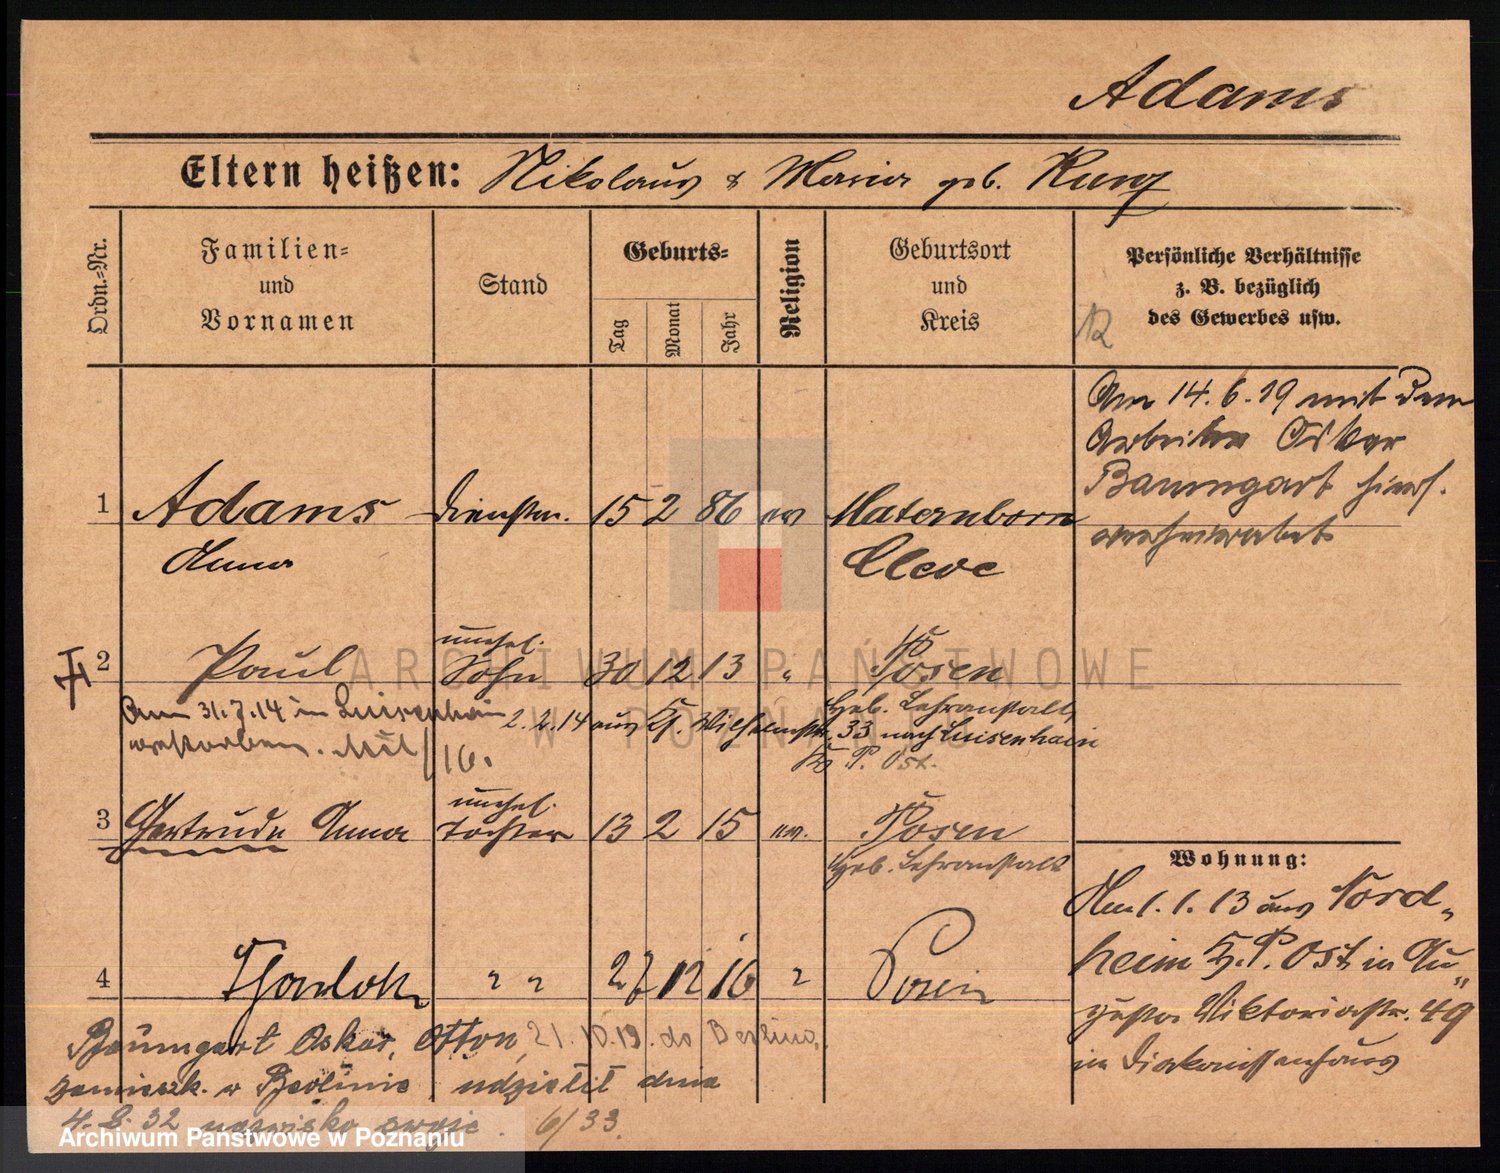 Adams
Eltern heißen: Nikolaus & Maria geb. Kunz
Ordn.-Nr.
Familien- und Vornamen
Stand
Geburts-
Tag
Monat
Jahr
Religion
Geburtsort und Kreis
Persönliche Verhältnisse z. B. bezüglich des Gewerbes usw.
Am 14. 6. 19 mit dem
Arbeiter Oskar
Baumgart hiers.
verheiratet
1 Adams Dienstm. 15 2 86 ev Maternborn
Anna Cleve
unehel.
2 Paul Sohn 30 12 13 " Posen
Am 31.7.14 in Luisenhain
verstorben.
16.
Heb. Lehranstalt,
2. 2. 14 aus Kl. Wilhelmstr. 33 nach Luisenhain
P. Ost.
unehel.
3 Gertrude Anna Tochter 13 2 15 ev. Posen
Heb. Lehranstalt
4 " " 27 12 16 " Posen
Wohnung:
Am 1. 1. 13 aus Nord-
heim K. P. Ost in Au-
gusta Viktoriastr. 49
in Diakonissenhaus
Baumgart Oskar, Otton, 21.10.19. do Berlina,
zamieszk. w Berlinie udzielił dnia
4. 8. 32 nazwisko swoje. 6/33.
ARCHIWUM PAŃSTWOWE
W POZNANIU
Archiwum Państwowe w Poznaniu